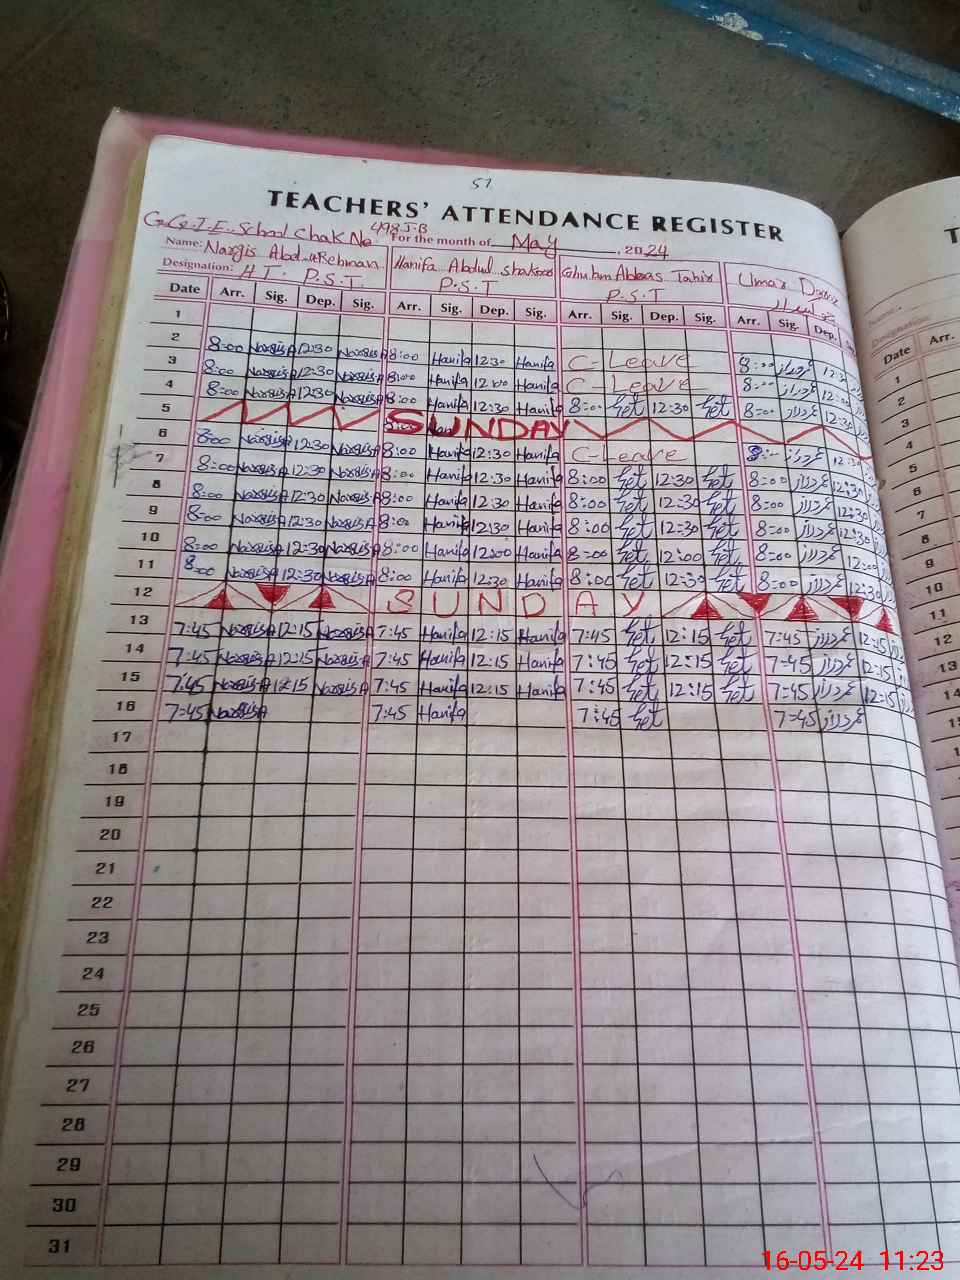 57
TEACHERS' ATTENDANCE REGISTER
G.G.I.E. School Chak No 498 J-B For the month of May, 2024
Name: Nargis Abd-u-Rehman Hanifa Abdul Shakoor Ghulam Abbas Tahir Umar
Designation: H T. P.S.T. P.S.T P.S.T
Date Arr. Sig. Dep. Sig. Arr. Sig. Dep. Sig. Arr. Sig. Dep. Sig. Arr. Sig. Dep.
1
2 8:00 Nargis A 12:30 Nargis A 8:00 Hanifa 12:30 Hanifa C-Leave 8:00 عمردراز 12:30
3 8:00 Nargis A 12:30 Nargis A 8:00 Hanifa 12:00 Hanifa C-Leave 8:00 عمردراز 12:00
4 8:00 Nargis A 12:30 Nargis A 8:00 Hanifa 12:30 Hanifa 8:00 12:30 8:00 عمردراز 12:30
5 SUNDAY
6 8:00 Nargis A 12:30 Nargis A 8:00 Hanifa 12:30 Hanifa C-Leave 8:00 عمردراز 12:30
7 8:00 Nargis A 12:30 Nargis A 8:00 Hanifa 12:30 Hanifa 8:00 12:30 8:00 عمردراز 12:30
8 8:00 Nargis A 12:30 Nargis A 8:00 Hanifa 12:30 Hanifa 8:00 12:30 8:00 عمردراز 12:30
9 8:00 Nargis A 12:30 Nargis A 8:00 Hanifa 12:30 Hanifa 8:00 12:30 8:00 عمردراز 12:30
10 8:00 Nargis A 12:30 Nargis A 8:00 Hanifa 12:00 Hanifa 8:00 12:00 8:00 عمردراز 12:00
11 8:00 Nargis A 12:30 Nargis A 8:00 Hanifa 12:30 Hanifa 8:00 12:30 8:00 عمردراز 12:30
12 SUNDAY
13 7:45 Nargis A 12:15 Nargis A 7:45 Hanifa 12:15 Hanifa 7:45 12:15 7:45 عمردراز 12:15
14 7:45 Nargis A 12:15 Nargis A 7:45 Hanifa 12:15 Hanifa 7:45 12:15 7:45 عمردراز 12:15
15 7:45 Nargis A 12:15 Nargis A 7:45 Hanifa 12:15 Hanifa 7:45 12:15 7:45 عمردراز 12:15
16 7:45 Nargis A 7:45 Hanifa 7:45 7:45 عمردراز
17
18
19
20
21
22
23
24
25
26
27
28
29
30
31
Name:
Designation:
Date Arr.
1
2
3
4
5
6
7
8
9
10
11
12
13
14
15
16-05-24 11:23